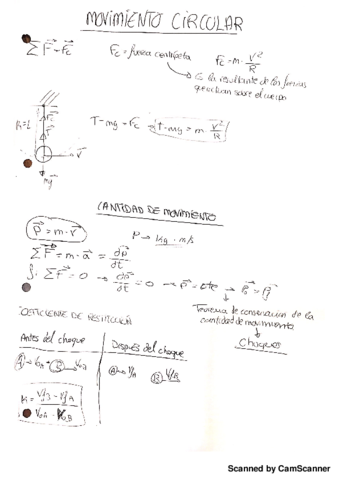 MOVIMIENTO CIRCULAR
ΣF⃗ = F⃗c
Fc = fuerza centrípeta
Fc = m · v²/R
Es la resultante de las fuerzas
que actúan sobre el cuerpo
R = L
T - mg = Fc
T - mg = m · v²/R
mg
CANTIDAD DE MOVIMIENTO
p⃗ = m · v⃗
P → kg · m/s
ΣF⃗ = m · a⃗ = dp⃗/dt
Si ΣF⃗ = 0 → dp⃗/dt = 0 → p⃗ = cte → p⃗₀ = p⃗f
Teorema de conservación de la
cantidad de movimiento
Choques
COEFICIENTE DE RESTITUCIÓN
Antes del choque
Después del choque